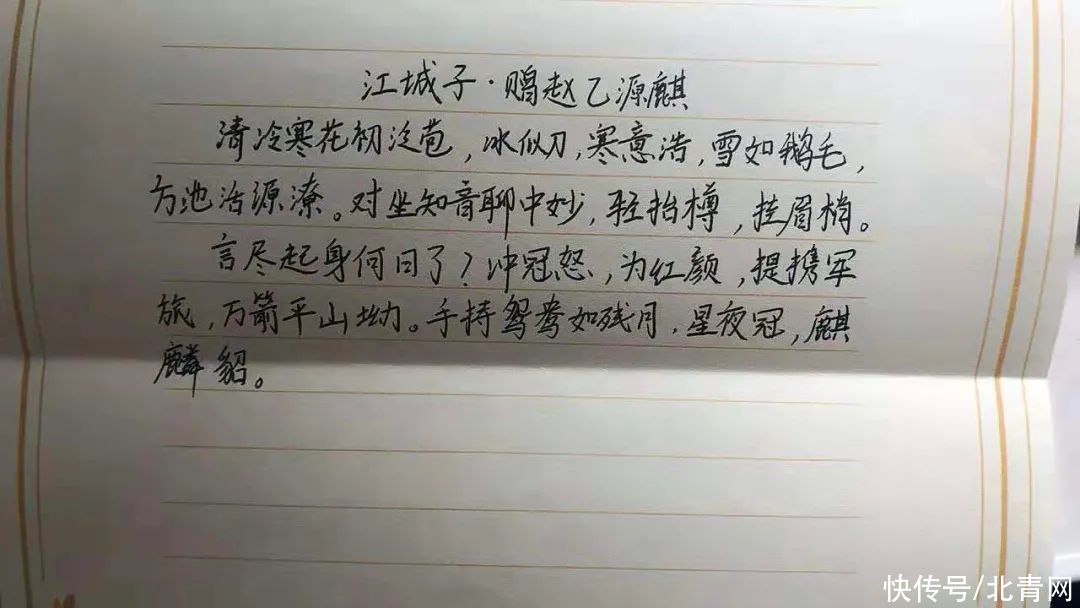 江城子·赠赵乙源麒
清冷寒花初泛苞，冰似刀，寒意浩，雪如鹅毛，
方池沽源潦。对坐知音聊中妙，轻抬樽，挂眉梢。
言尽起身何日了？冲冠怒，为红颜，提携军
旅，万箭平山坳。手持鸳鸯如残月，星夜冠，麒
麟貂。
快传号/北青网